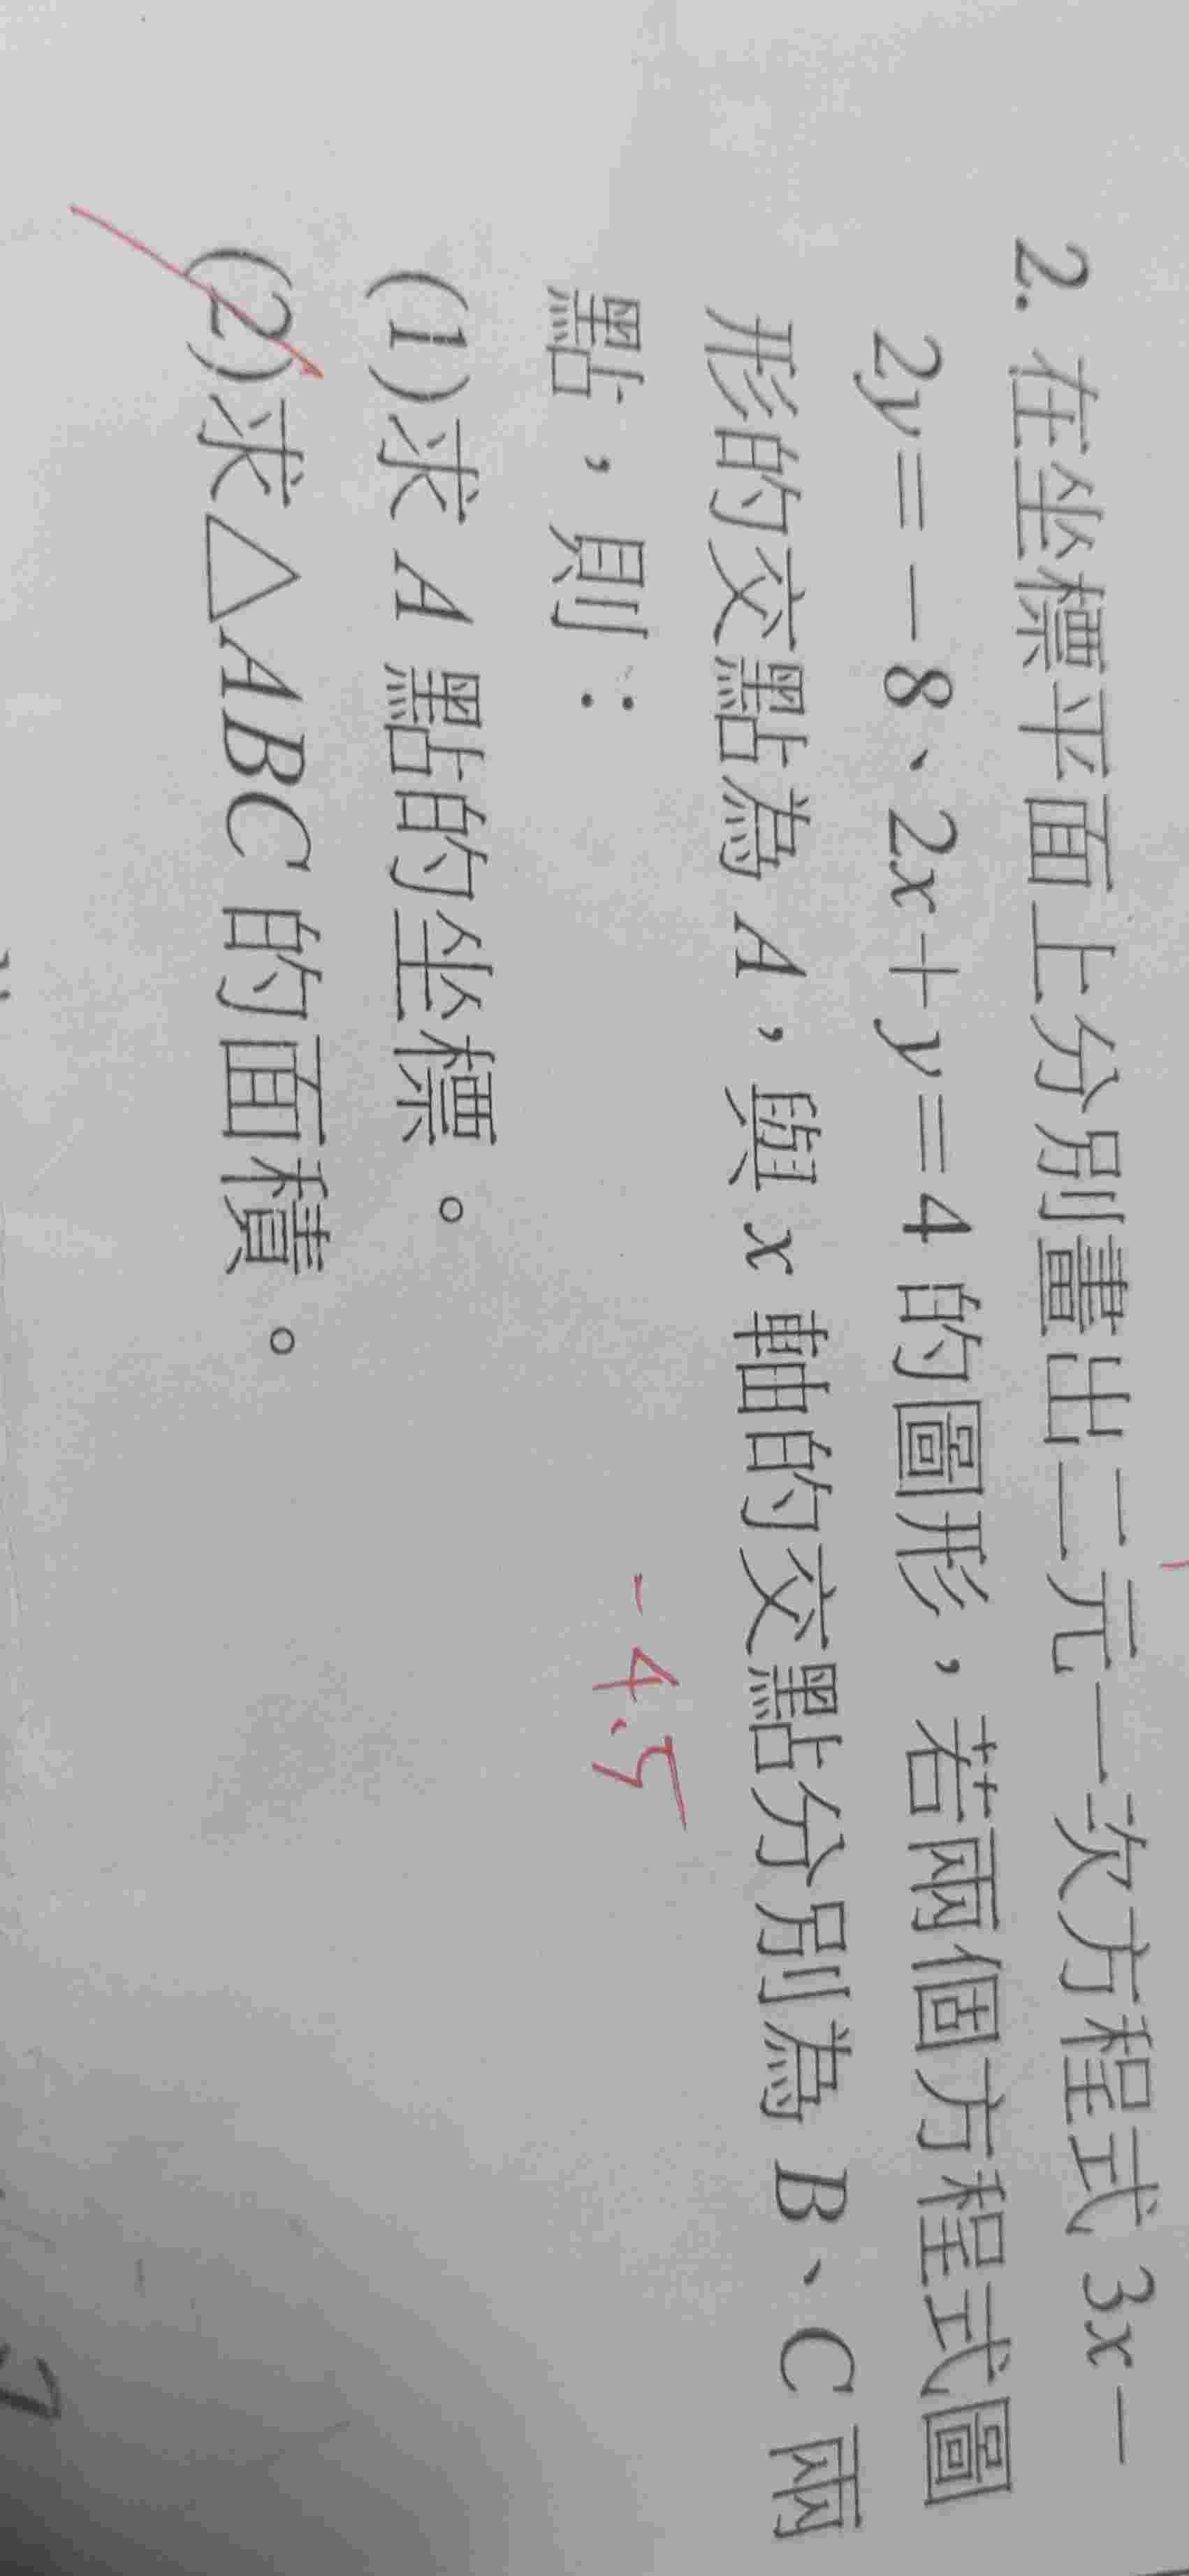 2. 在坐標平面上分別畫出二元一次方程式 3x－
2y＝－8、2x＋y＝4 的圖形，若兩個方程式圖
形的交點為 A，與 x 軸的交點分別為 B、C 兩
點，則：
－4.5
(1)求 A 點的坐標。
(2)求△ABC 的面積。